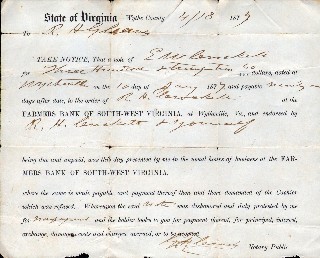 State of Virginia Wythe County 4/13 1859
To R. H.
TAKE NOTICE, That a note of E W
for Three Hundred dollars, dated at
Wytheville on the 10 day of Jany 1859 and payable ninety
days after date, to the order of R. H. at the
FARMERS BANK OF SOUTH-WEST VIRGINIA, at Wytheville, Va., and endorsed by
R. H. & yourself
being due and unpaid, was this day presented by me in the usual hours of business at the FAR-
MERS BANK OF SOUTH-WEST VIRGINIA.
where the same is made payable and payment thereof then and there demanded of the Cashier
which was refused. Whereupon the said note was dishonored and duly protested by me
for nonpayment and the holder looks to you for payment thereof, for principal, interest,
exchange, damages, costs and charges accrued, or to accrue.
Notary Public